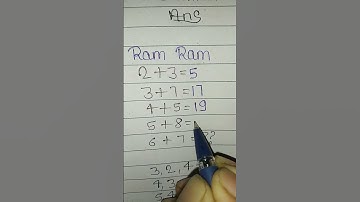 Ans
Ram Ram
2+3=5
3+7=17
4+5=19
5+8=
6+7=??
3,2,4
4,3
5,4